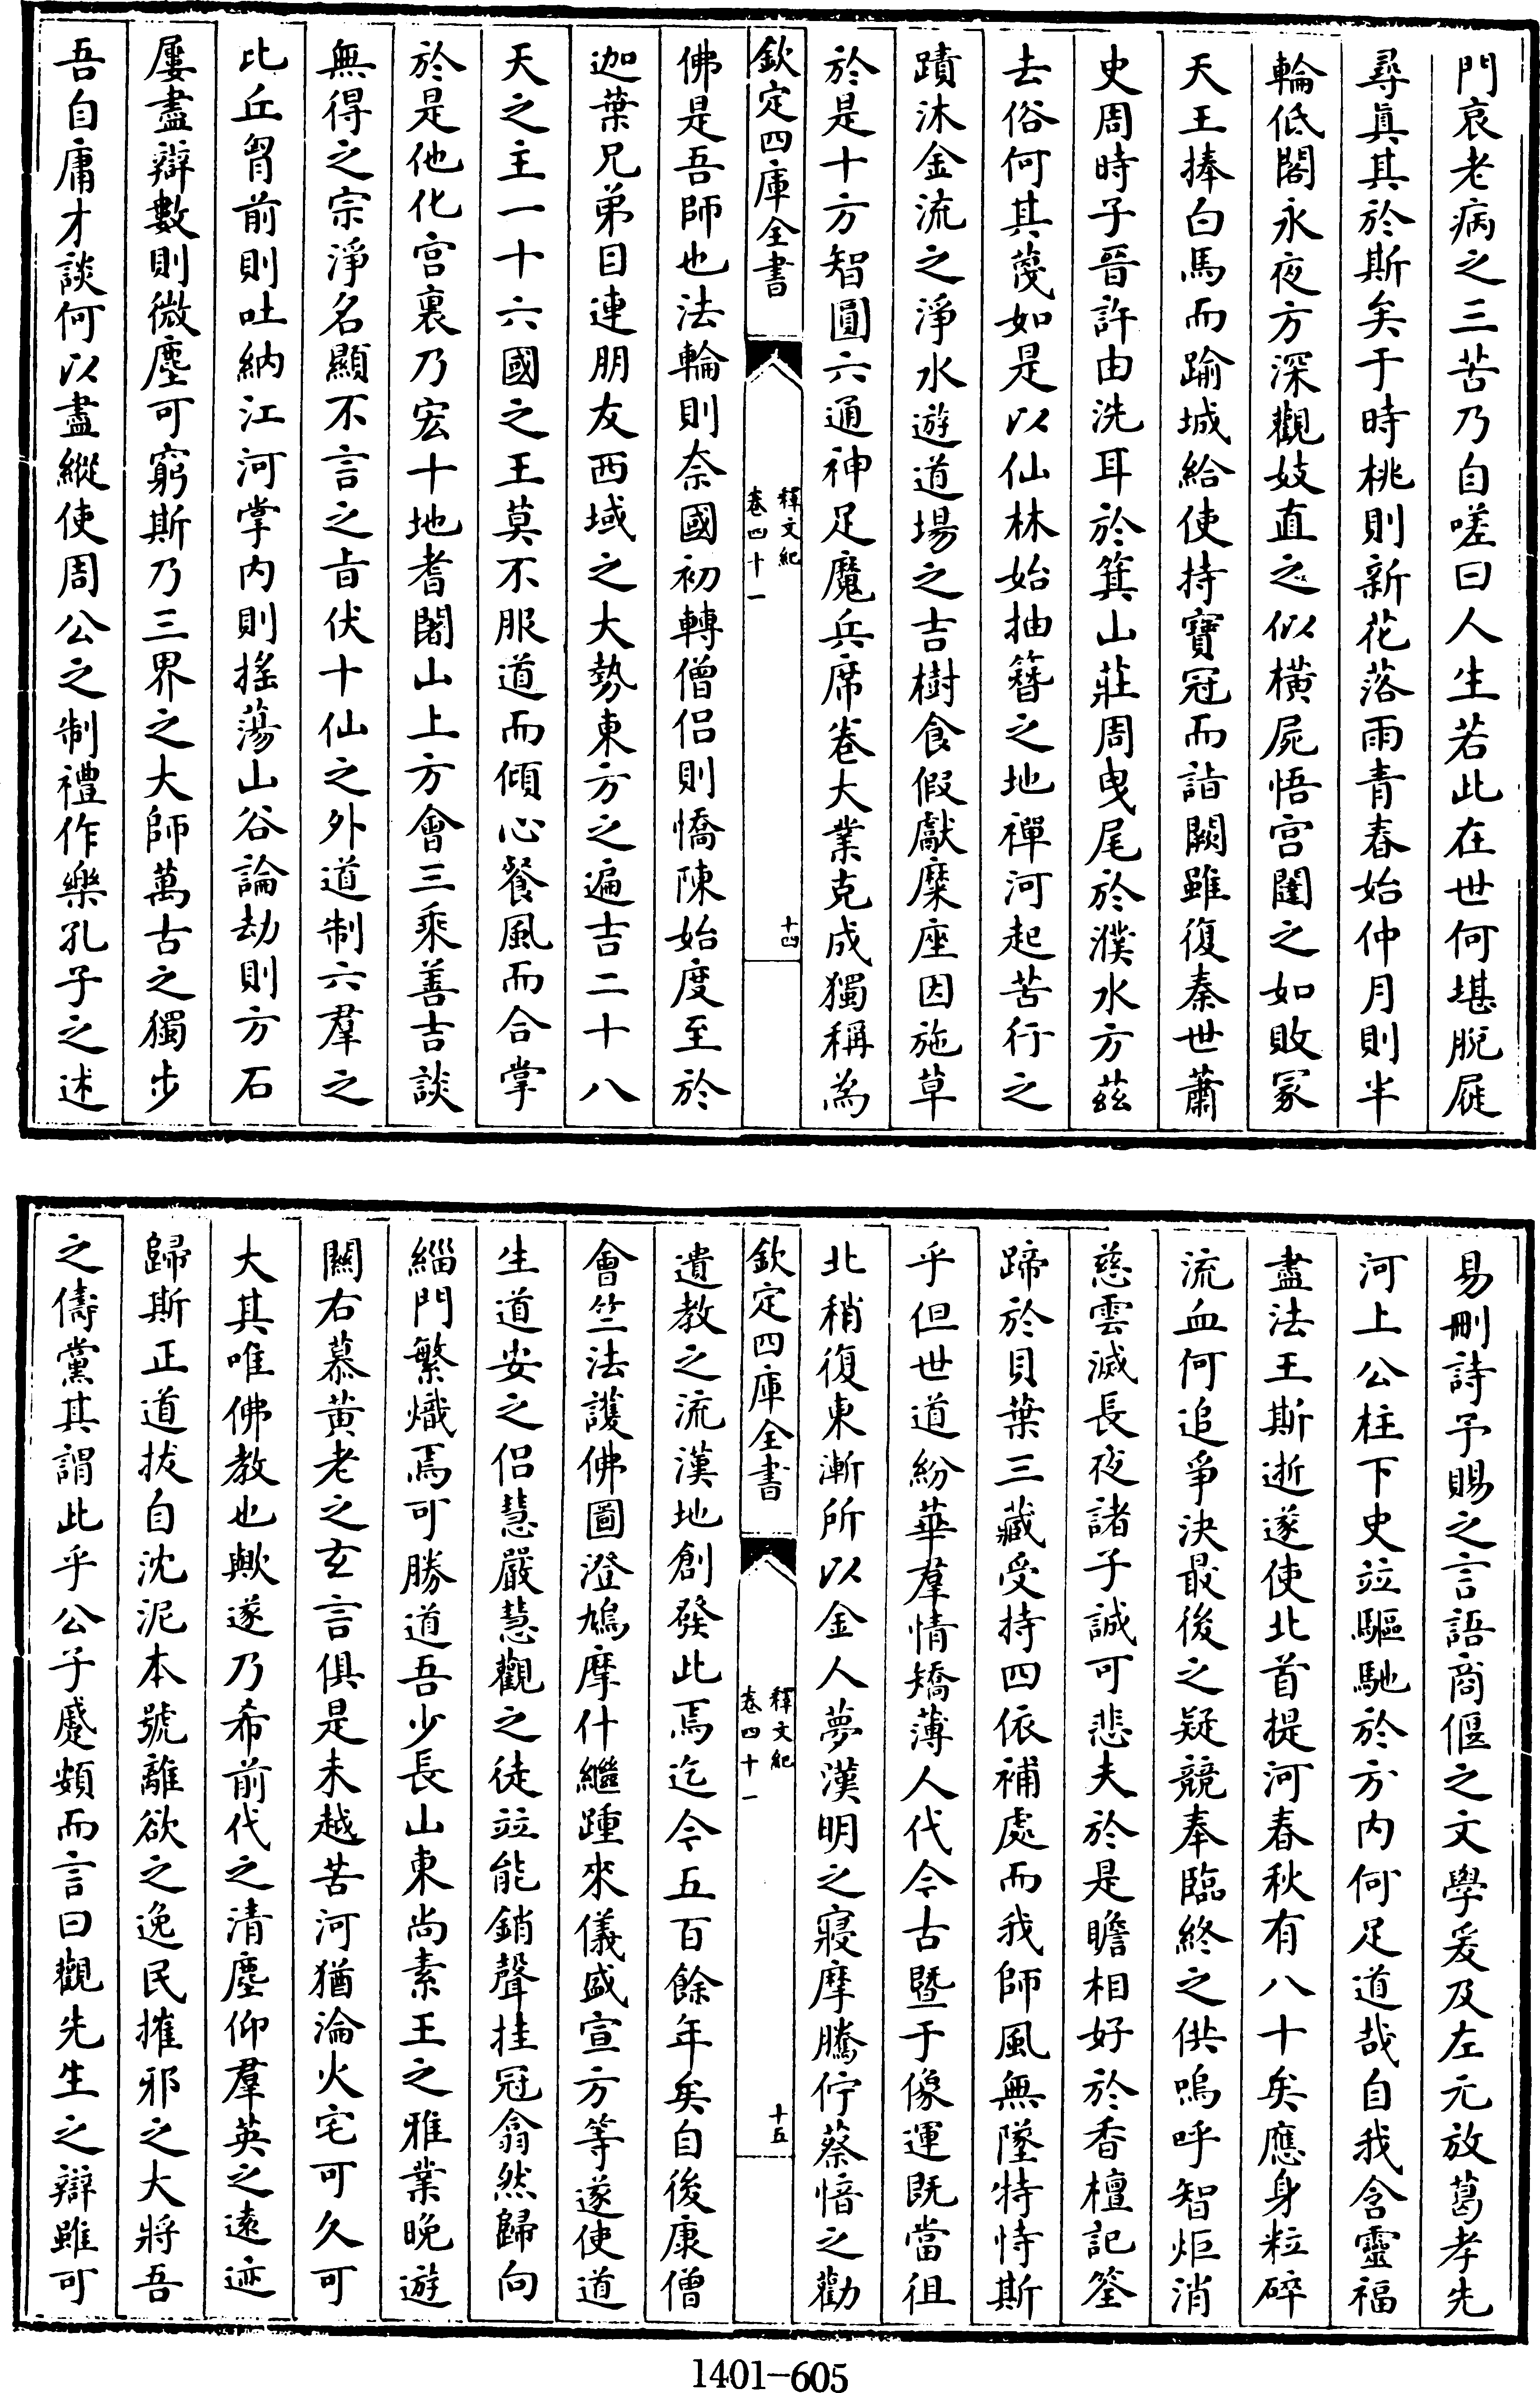 門哀老病之三苦乃自嗟曰人生若此在世何堪脫屣
尋真其於斯矣于時桃則新花落雨青春始仲月則半
輪低閣永夜方深觀妓直之似橫屍悟宮闈之如敗冢
天王捧白馬而踰城給使持寶冠而詣闕雖復秦世蕭
史周時子晉許由洗耳於箕山莊周曳尾於濮水方茲
去俗何其蔑如是以仙林始抽簪之地禪河起苦行之
蹟沐金流之淨水遊道場之吉樹食假獻糜座因施草
於是十方智圓六通神足魔兵席卷大業克成獨稱為
欽定四庫全書
釋文紀
卷四十一
十四
佛是吾師也法輪則奈國初轉僧侶則憍陳始度至於
迦葉兄弟目連朋友西域之大勢東方之遍吉二十八
天之主一十六國之王莫不服道而傾心餐風而合掌
於是他化宮裏乃宏十地耆闍山上方會三乘善吉談
無得之宗淨名顯不言之旨伏十仙之外道制六羣之
比丘胷前則吐納江河掌內則搖蕩山谷論劫則方石
屢盡辯數則微塵可窮斯乃三界之大師萬古之獨步
吾自庸才談何以盡縱使周公之制禮作樂孔子之述
易刪詩予賜之言語商偃之文學爰及左元放葛孝先
河上公柱下史竝驅馳於方內何足道哉自我含靈福
盡法王斯逝遂使北首提河春秋有八十矣應身粒碎
流血何追爭決最後之疑競奉臨終之供嗚呼智炬消
慈雲滅長夜諸子誠可悲夫於是瞻相好於香檀記筌
蹄於貝葉三藏受持四依補處而我師風無墜特恃斯
乎但世道紛華羣情矯薄人代今古暨于像運既當徂
北稍復東漸所以金人夢漢明之寢摩騰佇蔡愔之勸
欽定四庫全書
釋文紀
卷四十一
十五
遺教之流漢地創發此焉迄今五百餘年矣自後康僧
會竺法護佛圖澄鳩摩什繼踵來儀盛宣方等遂使道
生道安之侶慧嚴慧觀之徒竝能銷聲挂冠翕然歸向
緇門繁熾焉可勝道吾少長山東尚素王之雅業晚遊
關右慕黃老之玄言俱是未越苦河猶淪火宅可久可
大其唯佛教也歟遂乃希前代之清塵仰羣英之遠迹
歸斯正道拔自沈泥本號離欲之逸民摧邪之大將吾
之儔黨其謂此乎公子蹙頞而言曰觀先生之辯雖可
1401-605